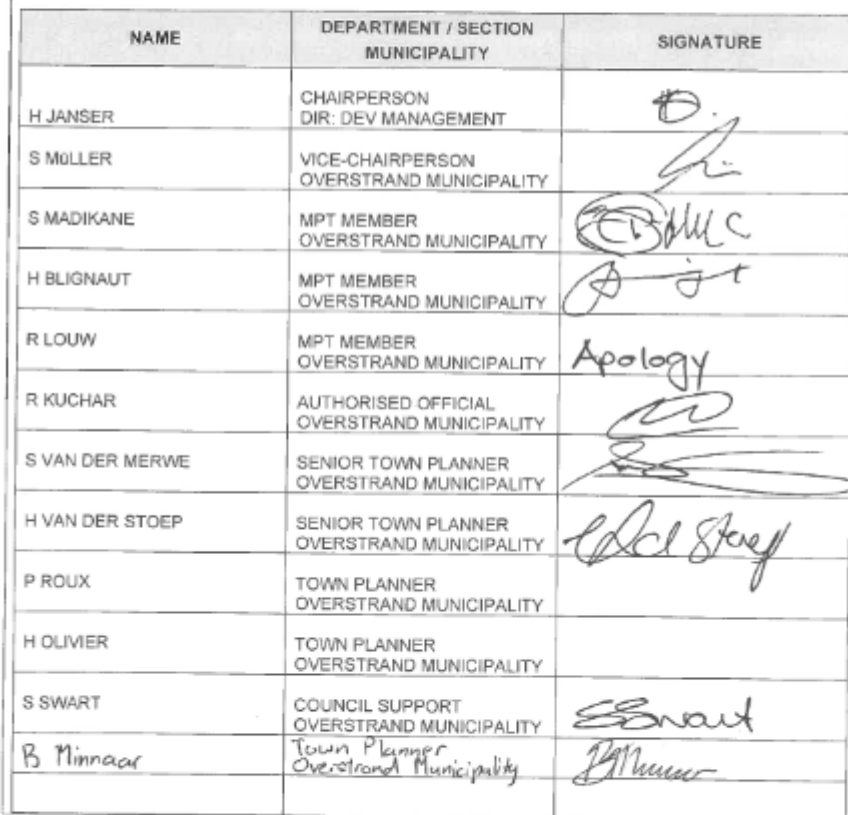 NAME
DEPARTMENT / SECTION
MUNICIPALITY
SIGNATURE
H JANSER
CHAIRPERSON
DIR: DEV MANAGEMENT
S MüLLER
VICE-CHAIRPERSON
OVERSTRAND MUNICIPALITY
S MADIKANE
MPT MEMBER
OVERSTRAND MUNICIPALITY
H BLIGNAUT
MPT MEMBER
OVERSTRAND MUNICIPALITY
R LOUW
MPT MEMBER
OVERSTRAND MUNICIPALITY
Apology
R KUCHAR
AUTHORISED OFFICIAL
OVERSTRAND MUNICIPALITY
S VAN DER MERWE
SENIOR TOWN PLANNER
OVERSTRAND MUNICIPALITY
H VAN DER STOEP
SENIOR TOWN PLANNER
OVERSTRAND MUNICIPALITY
P ROUX
TOWN PLANNER
OVERSTRAND MUNICIPALITY
H OLIVIER
TOWN PLANNER
OVERSTRAND MUNICIPALITY
S SWART
COUNCIL SUPPORT
OVERSTRAND MUNICIPALITY
SSwart
B Minnaar
Town Planner
Overstrand Municipality